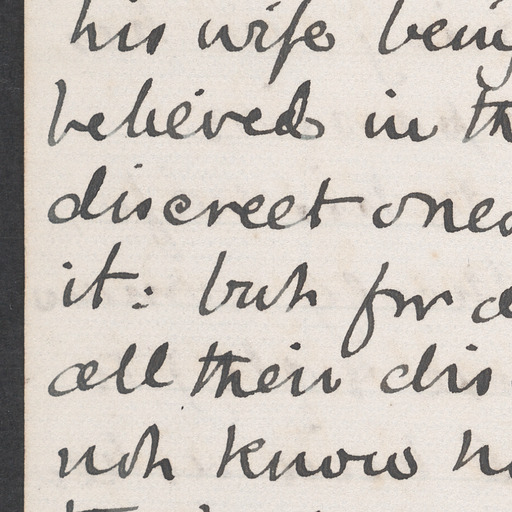 his wife being
believed in th
discreet ones
it: but for a
all their dis
not know h